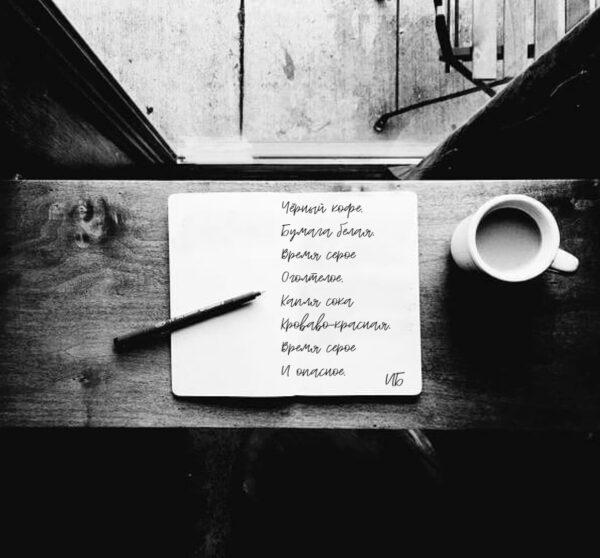 Чёрный кофе.
Бумага белая.
Время серое
Оголтелое.
Капля сока
Кроваво-красная.
Время серое
И опасное.
ИБ